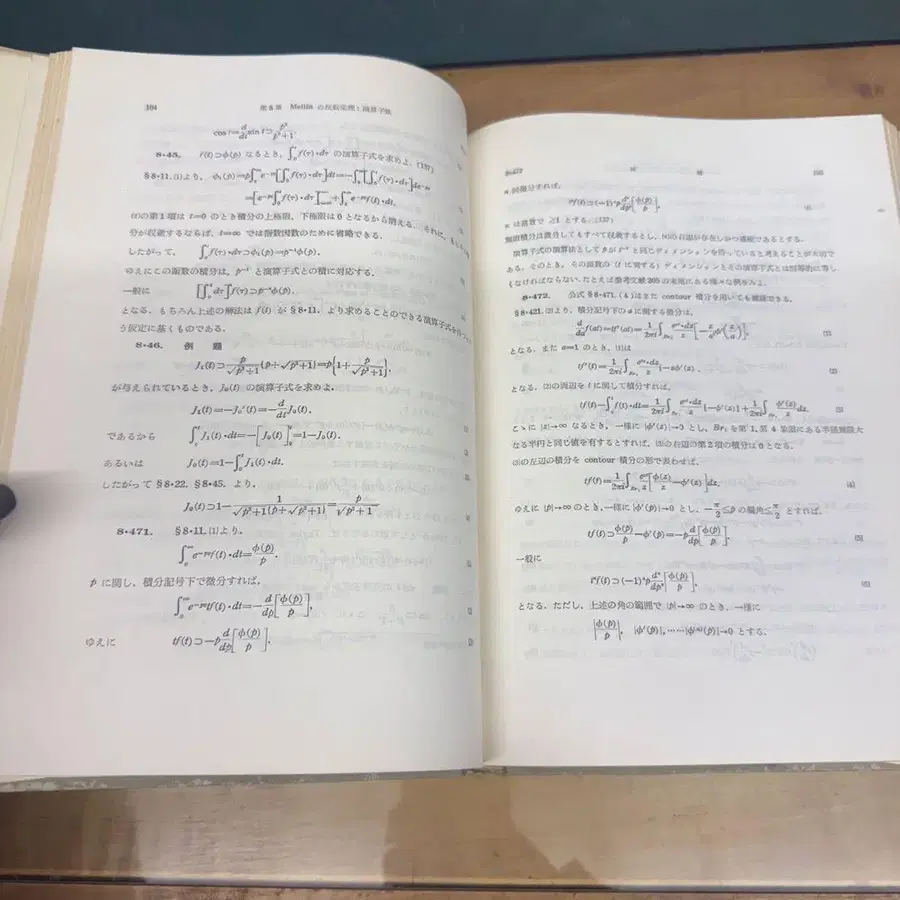 164 第8章 Mellin の反転定理；演算子法
cos t=d/dt sin t⊃p²/(p²+1).
8・45. f(t)⊃φ(p) なるとき，∫₀ᵗf(τ)・dτ の演算子式を求めよ．(137)
§8・11.(1)より，φ₁(p)=p∫₀^∞e^{-pt}[∫₀ᵗf(τ)・dτ]dt=-∫₀^∞[∫₀ᵗf(τ)・dτ]de^{-pt}
=[e^{-pt}∫₀ᵗf(τ)・dτ]+∫₀^∞e^{-pt}f(t)・dt.
の第1項は t=0 のとき積分の上極限，下極限は0となるから消える．それに，もし
分が収斂するならば，t=∞ では指数因数のために省略できる．
したがって， ∫₀ᵗf(τ)・dτ⊃φ₁(p)=p⁻¹φ(p).
ゆえにこの函数の積分は，p⁻¹ と演算子式との積に対応する．
一般に [∫₀ᵗdτ]ⁿf(τ)⊃p⁻ⁿφ(p).
となる．もちろん上述の解法は f(t) が §8・11. より求めることのできる演算子式を持つとい
う仮定に基くものである．
8・46. 例題
J₁(t)⊃p/(√(p²+1){p+√(p²+1)})=p{1+p/√(p²+1)},
が与えられているとき，J₀(t) の演算子式を求めよ．
J₁(t)=-J₀′(t)=-d/dt J₀(t).
であるから ∫₀ᵗJ₁(t)・dt=-[J₀(t)]₀ᵗ=1-J₀(t).
あるいは J₀(t)=1-∫₀ᵗJ₁(t)・dt.
したがって §8・22. §8・45. より，
J₀(t)⊃1-1/(√(p²+1){p+√(p²+1)})=p/√(p²+1)
8・471. §8・11.(1)より，
∫₀^∞e^{-pt}f(t)・dt=φ(p)/p. (1)
p に関し，積分記号下で微分すれば，
∫₀^∞e^{-pt}tf(t)・dt=-d/dp[φ(p)/p], (2)
ゆえに tf(t)⊃-p d/dp[φ(p)/p], (3)
n 回微分すれば，
tⁿf(t)⊃(-1)ⁿp dⁿ/dpⁿ[φ(p)/p], (4)
n は整数で ≧1 とする．(137)
無限積分は微分してもすべて収斂するとし，(4)の右辺が存在しかつ連続であるとする．
演算子式の演算法として p が t⁻¹ と同じディメンションを持っていると考えることが大切で
ある．そのとき，その函数の（t に関する）ディメンションとその演算子式とは相等的に等し
くなければならない．たとえば参考文献205の末尾にある種々な例をみよ．
8・472. 公式 §8・471.(4)はまた contour 積分を用いても確認できる．
§8・421.(2)より，積分記号下の a に関する微分は，
d/da f(at)=tf′(at)=1/2πi∫ e^{zt}・dz/z[-z/a²φ′(z/a)], (1)
となる．また a=1 のとき，(1)は
tf′(t)=1/2πi∫ e^{zt}・dz/z[-zφ′(z)]. (2)
となる．(2)の両辺を t に関して積分すれば，
tf(t)-∫₀ᵗf(t)・dt=1/2πi∫ e^{zt}・dz/z[-φ′(z)]+1/2πi∫ φ′(z)/z dz. (3)
こゝに |z|→∞ なるとき，一様に |φ′(z)|→0 とし，Br₁ を第1，第4象限にある半径無限大
なる半円と同じ値を有するとすれば，(3)の右辺の第2項の積分は0となる．
(3)の左辺の積分を contour 積分の形で表わせば，
tf(t)=1/2πi∫ e^{zt}/z[φ(z)/z-φ′(z)]dz, (4)
ゆえに |p|→∞ のとき，一様に |φ′(p)|→0 とし，-π/2≦p の偏角≦π/2 とすれば，
tf(t)⊃φ(p)/p-φ′(p)=-p d/dp[φ(p)/p], (5)
一般に
tⁿf(t)⊃(-1)ⁿp dⁿ/dpⁿ[φ(p)/p], (6)
となる．ただし，上述の角の範囲で |p|→∞ のとき，一様に
|φ(p)/p|, |φ′(p)|,……|φ⁽ⁿ⁾(p)|→0 とする．